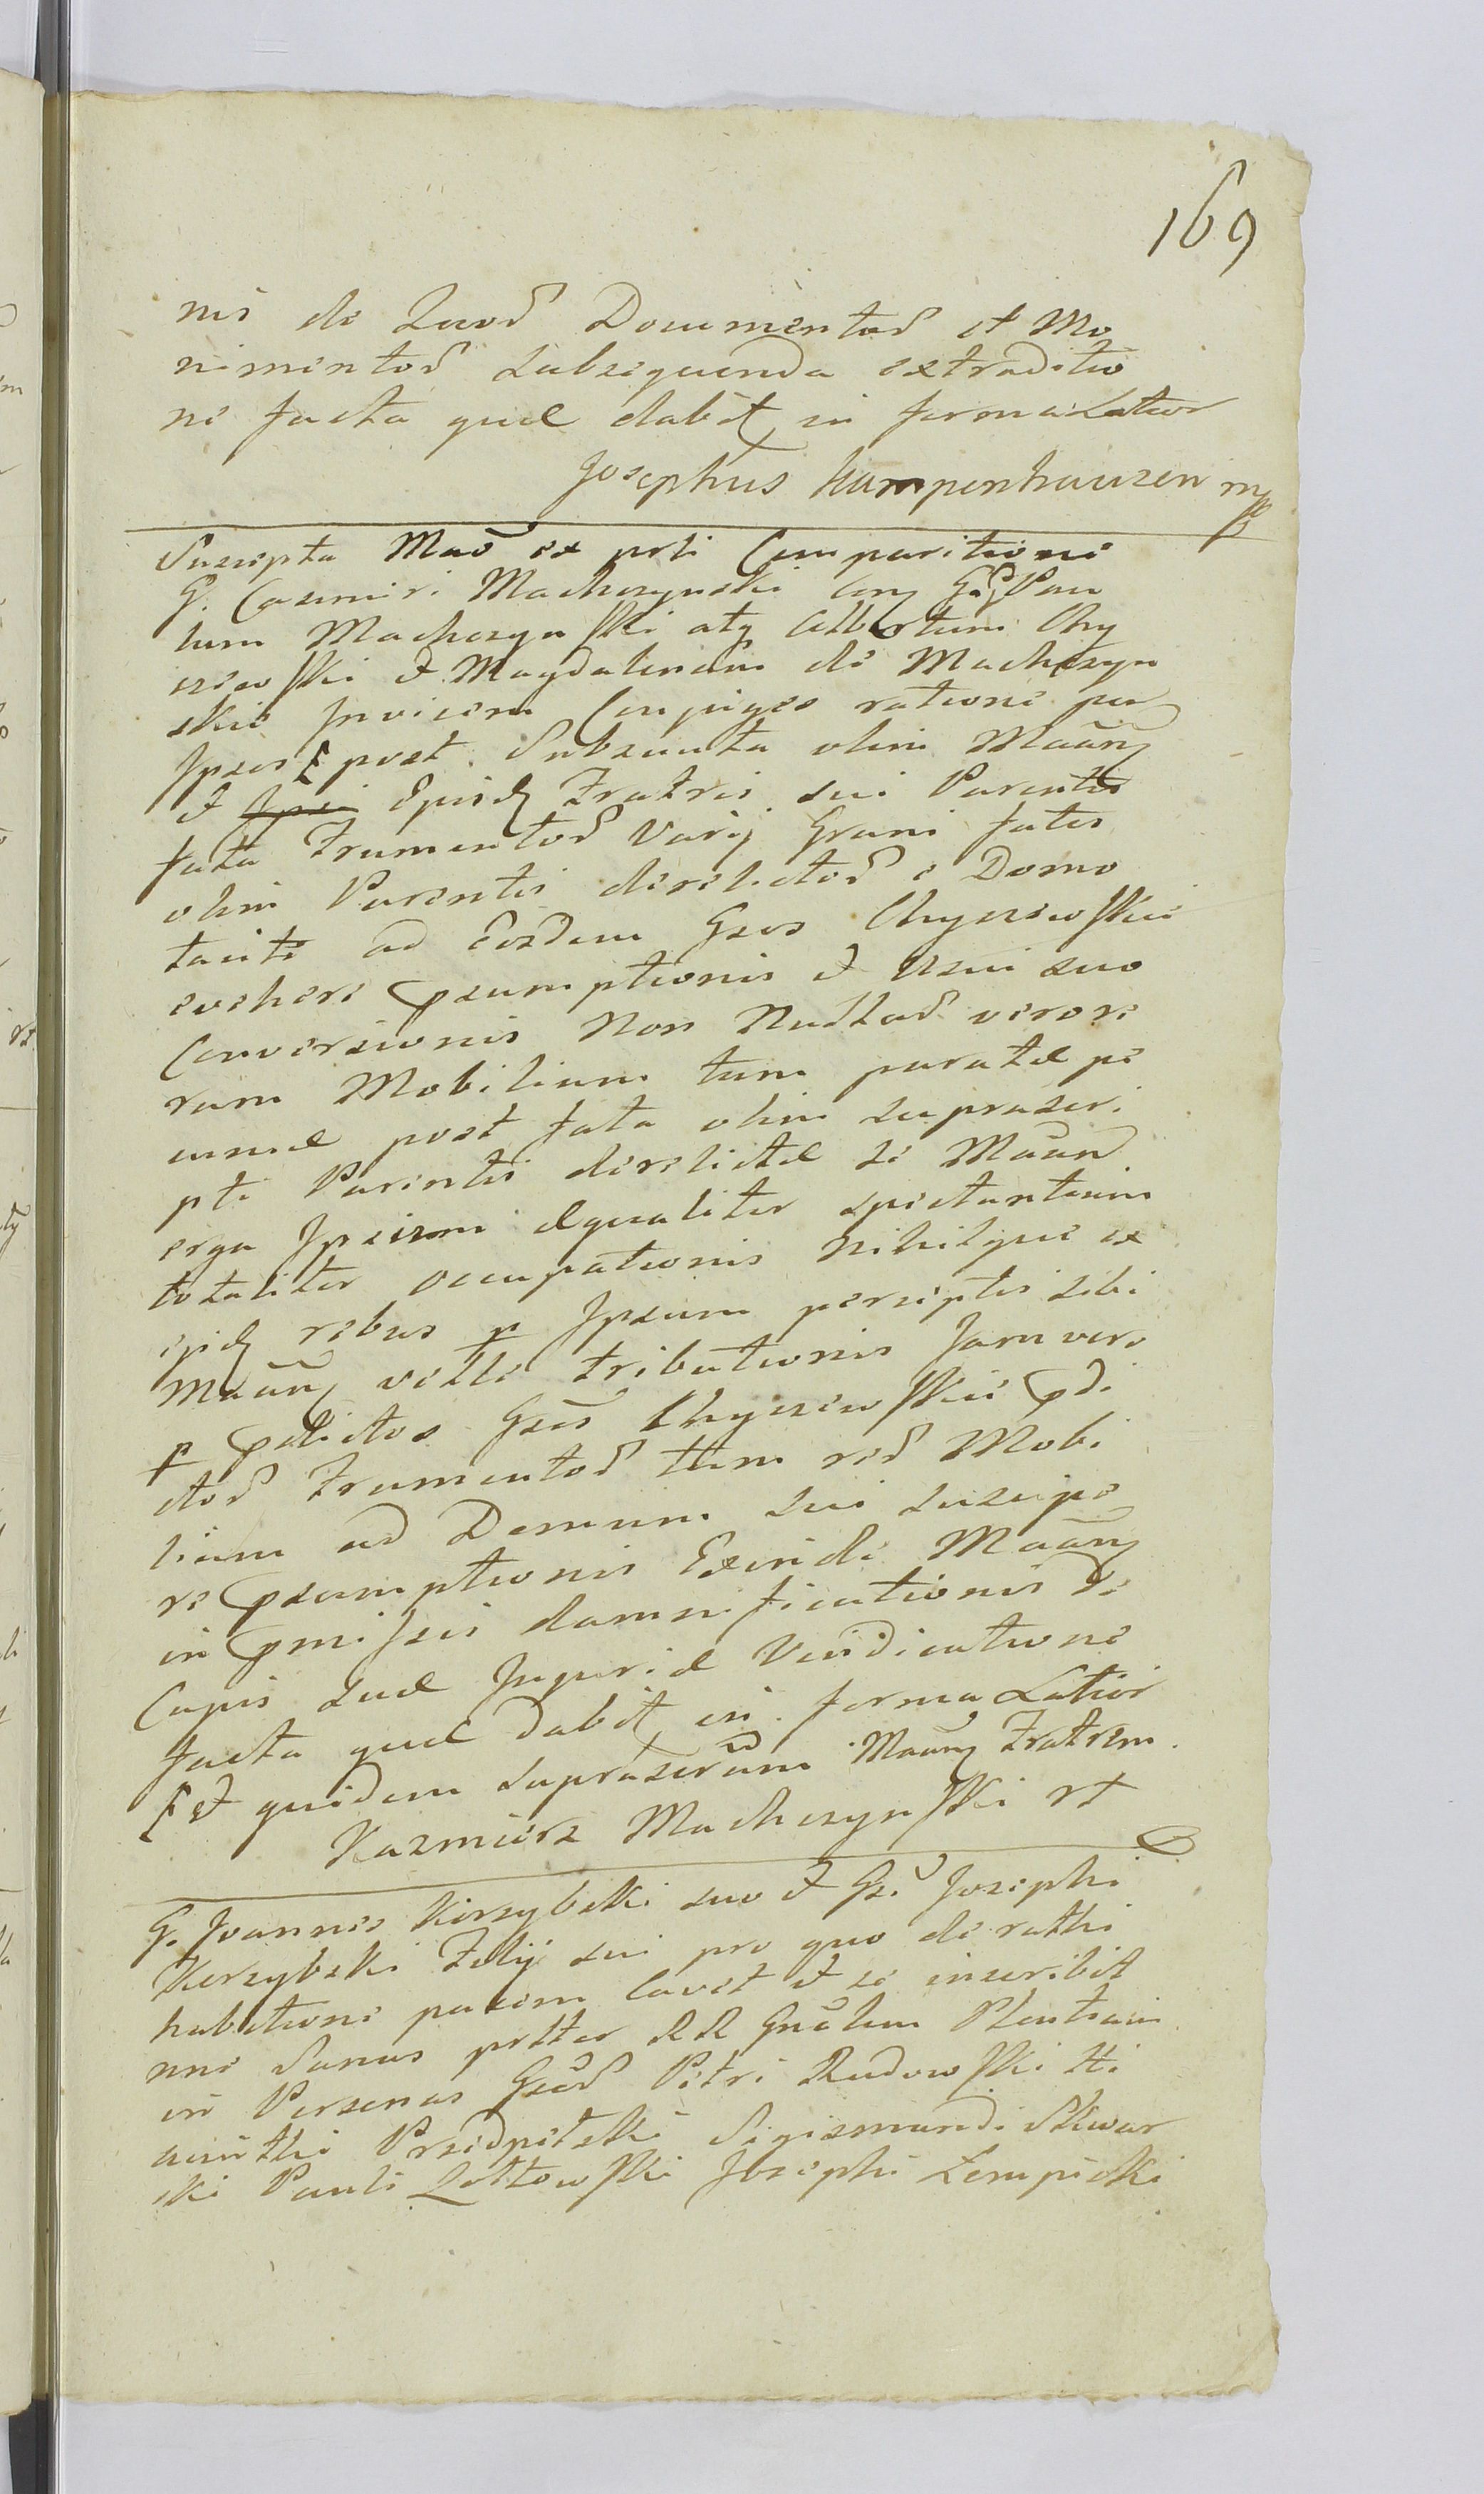 169
nis de Quod Documentor et Mo
nimentor subsequenda extraditio
ne facta quæ dabit in forma Latior
Josephus Kampenhauzen mp
Suscepta Mão ex prti Comparitione
G. Casimiri Machczynski Con͠ G͠s Pau
lum Machczynski atq Albertum Chy
czewski et Magdalenam de Machczyn
skie Invicem Conjuges ratione per
Ipsos post Subsecuta olim Maãn͠
et Ejusd Fratris sui Parentis
fata Frumentor Varij Grani fatis
olim Parentis derelictor e Domo
tacite ad Eosdem Gsos Chyczewskie
evehere psumptionis et Usui suo
Conversionis Non Nullar vero re
rum Mobilium tum paratæ pe
cuniæ post fata olim suprascri
pti Parentis derelictæ se Maãn
erga Ipsum æqualiter spectantium
totaliter occupationis nihilque ex
ejusd rebus p Ipsum perceptis sibi
Maãn͠ velle tributionis Jam vero
p pdictos Gsos Chyczewskie pdi
ctor Frumentor tum rer Mobi
lium ad Domum sui suscipe
re psumptionis Exinde Maãn͠
in pmissis damnificationis de
Cujus suæ Injuriæ Vindicatione
facta quæ dabit in forma Latior
Et quidem suprascrũm Maãn͠ Fratrem
Kazmierz Machczynski rt
G. Joannes Kirzybski suo et Gsi Josephi
Kirzybski Filij sui pro quo de rathi
habitione pacem Cavet et se inscribit
nne Sanus prtter RR Gnãlem Plentiam
in Personas Gsor Petri Rudowski Hi
acinthi Przedpełski Sigismundi Skwar
ski Pauli Zottowski Josephi Lempicki